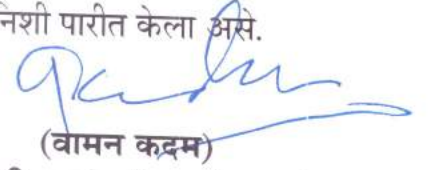 निशी पारीत केला असे.
(वामन कदम)